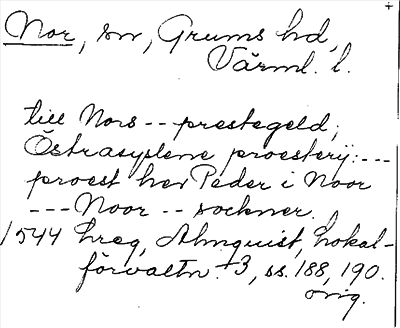 Nor, sn, Grums hd,
Värml. l.
till Nors -- prestegeld;
Östrasysslene proesterij: ---
proest her Peder i Noor
--- Noor -- sockner.
1544 hreg, Almquist, Lokal-
förvaltn. 3, ss. 188, 190.
orig.